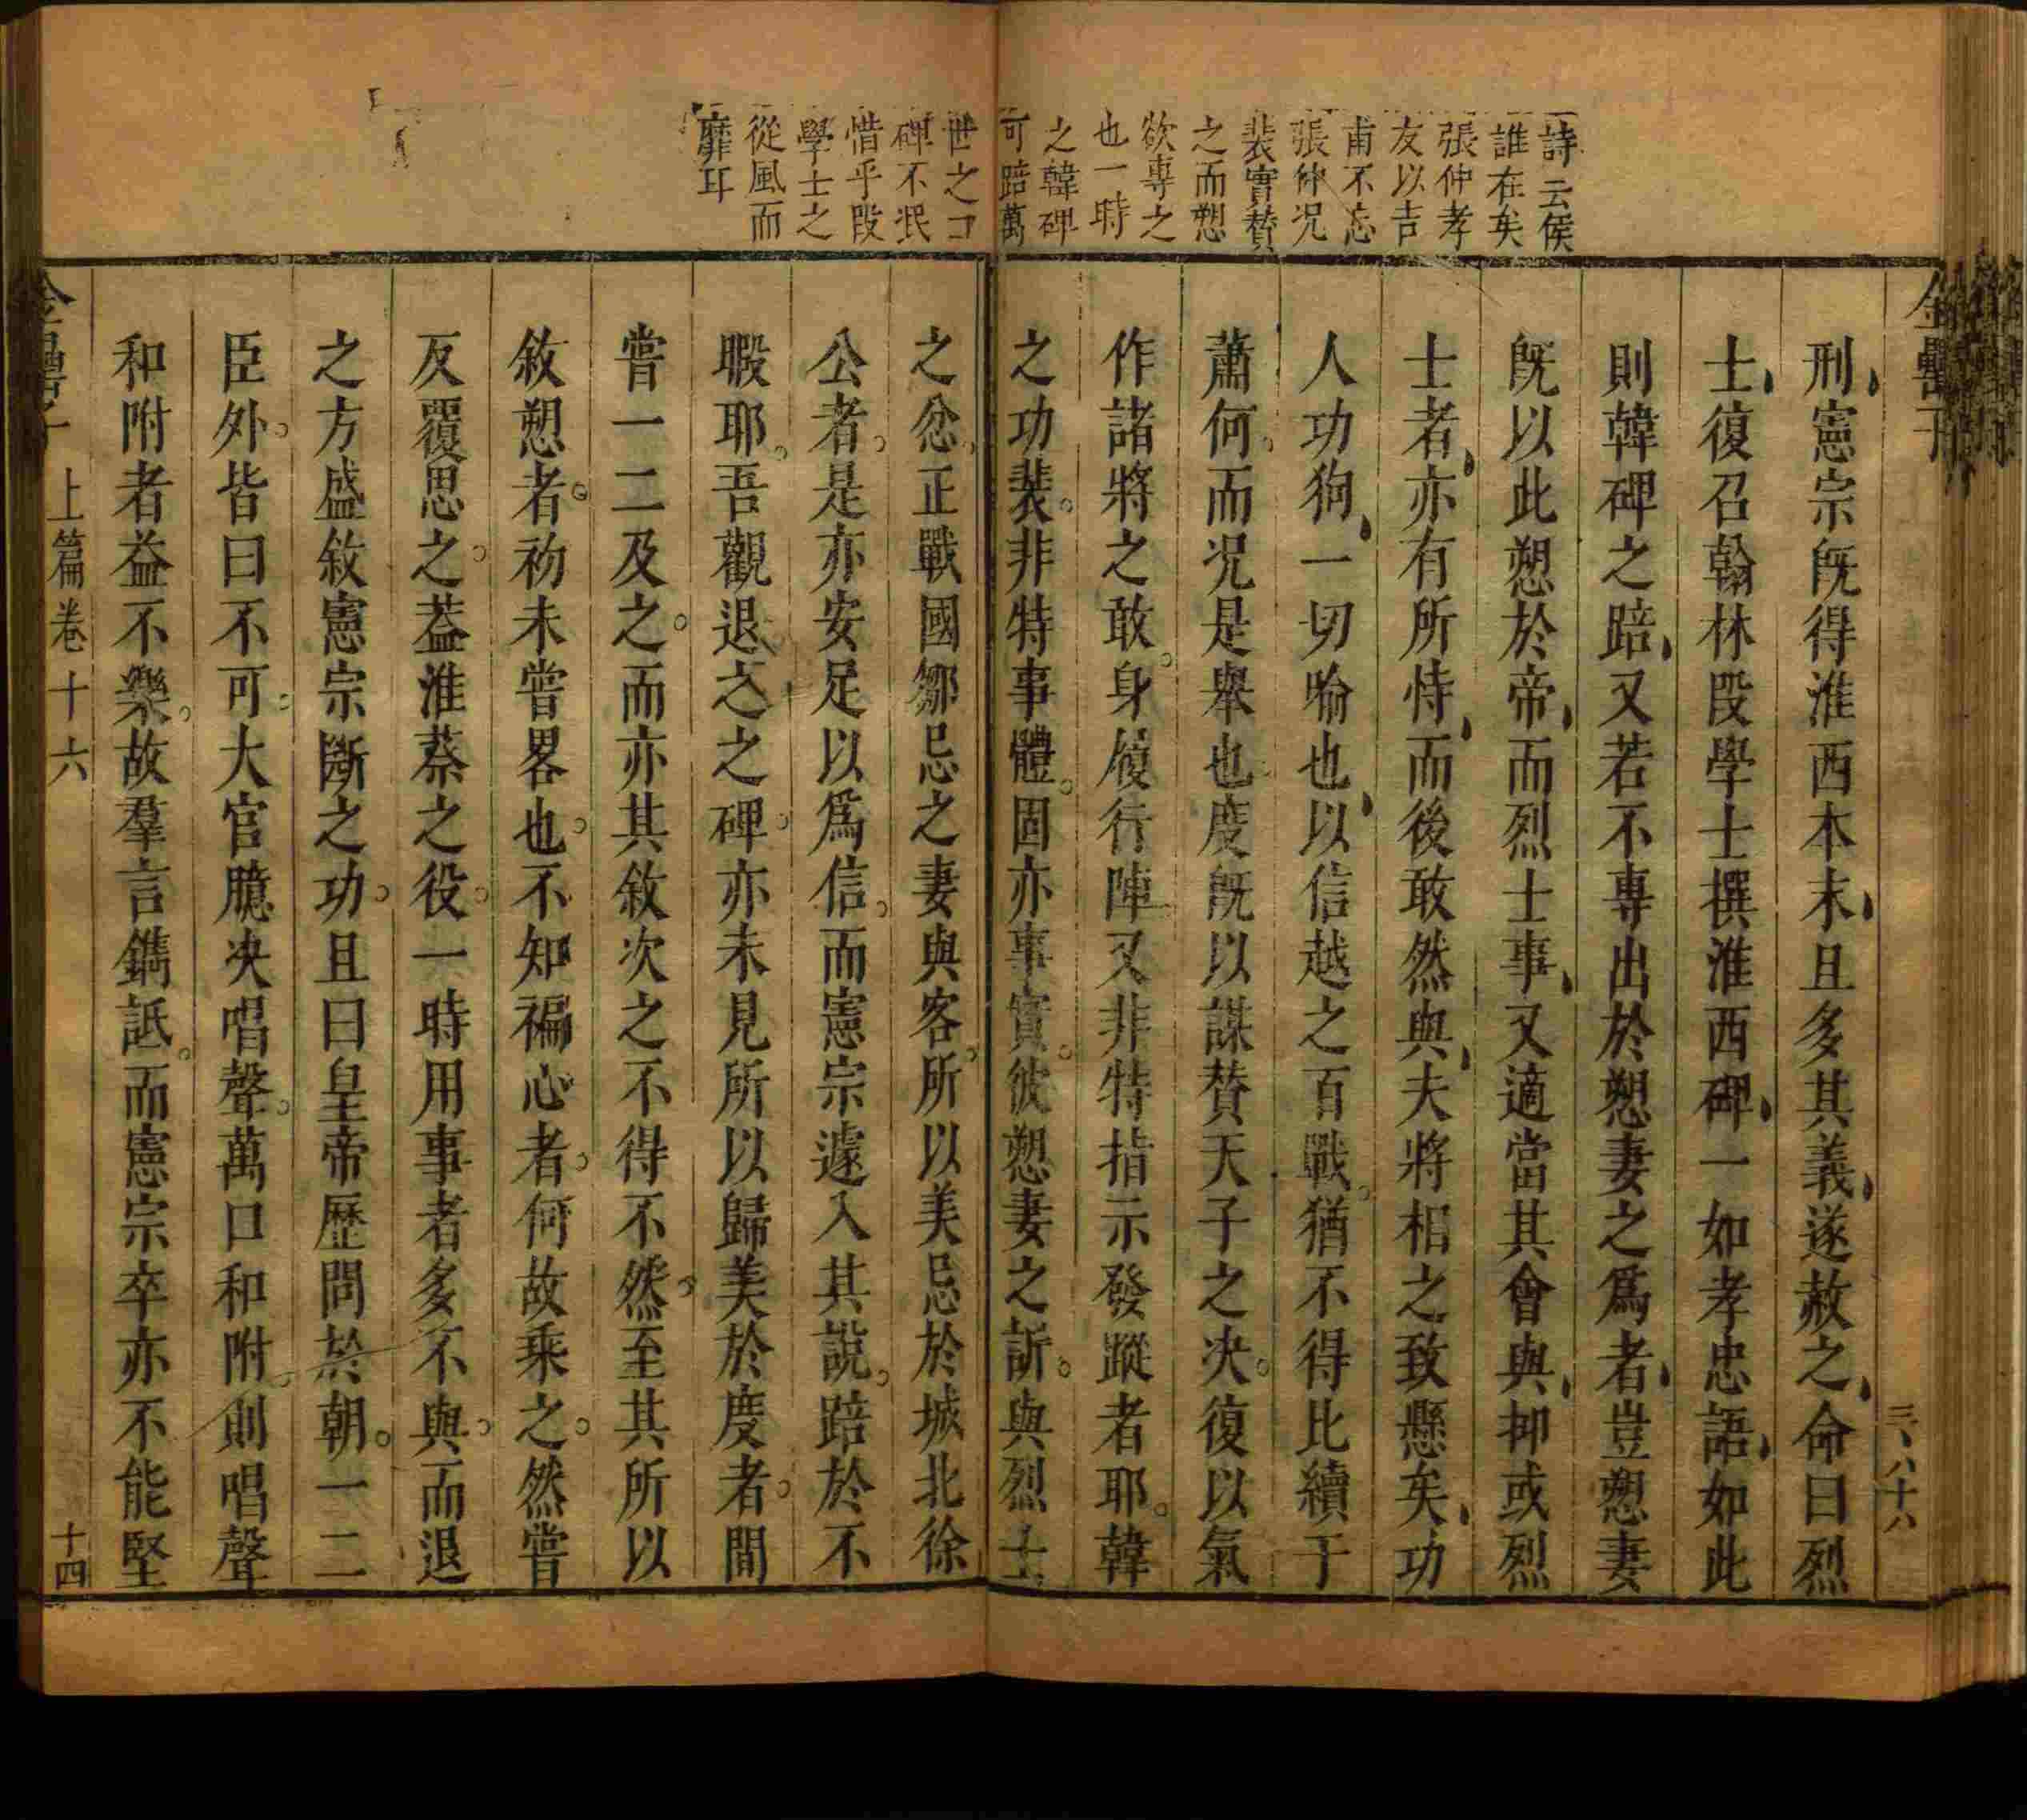 詩云侯
誰在矣
張仲孝
友以吉
甫不忘
張仲况
裴實贊
之而愬
欲專之
也一時
之韓碑
可踣萬
世之
碑不泯
惜乎段
學士之
從風而
靡耳
刑憲宗旣得淮西本末且多其義遂赦之命曰烈
士復召翰林段學士撰淮西碑一如孝忠語如此
則韓碑之踣又若不專出於愬妻之爲者豈愬妻
旣以此愬於帝而烈士事又適當其會與抑或烈
士者亦有所恃而後敢然與夫將相之致懸矣功
人功狗一切喻也以信越之百戰猶不得比續于
蕭何而况是舉也度旣以謀贊天子之决復以氣
作諸將之敢身履行陣又非特指示發蹤者耶韓
之功裴非特事體固亦事實彼愬妻之訴與烈士
之忿正戰國鄒忌之妻與客所以美忌於城北徐
公者是亦安足以爲信而憲宗遽入其說踣於不
暇耶吾觀退之之碑亦未見所以歸美於度者間
嘗一二及之而亦其敘次之不得不然至其所以
敘愬者初未嘗畧也不知褊心者何故乘之然嘗
反覆思之葢淮蔡之役一時用事者多不與而退
之方盛敘憲宗斷之功且曰皇帝歷問於朝一二
臣外皆曰不可大官臆决唱聲萬口和附則唱聲
和附者益不樂故羣言鐫詆而憲宗卒亦不能堅
上篇卷十六
十四